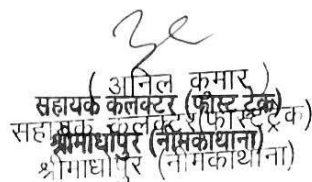 ( अनिल कुमार )
सहायक कलक्टर (फास्ट ट्रेक)
सहायक कलक्टर(फास्ट ट्रेक)
श्रीमाधोपुर (नीमकाथाना)
श्रीमाधोपुर (नीमकाथाना)